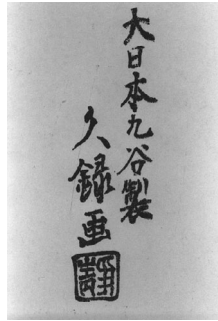 大日本九谷製
久録画
静